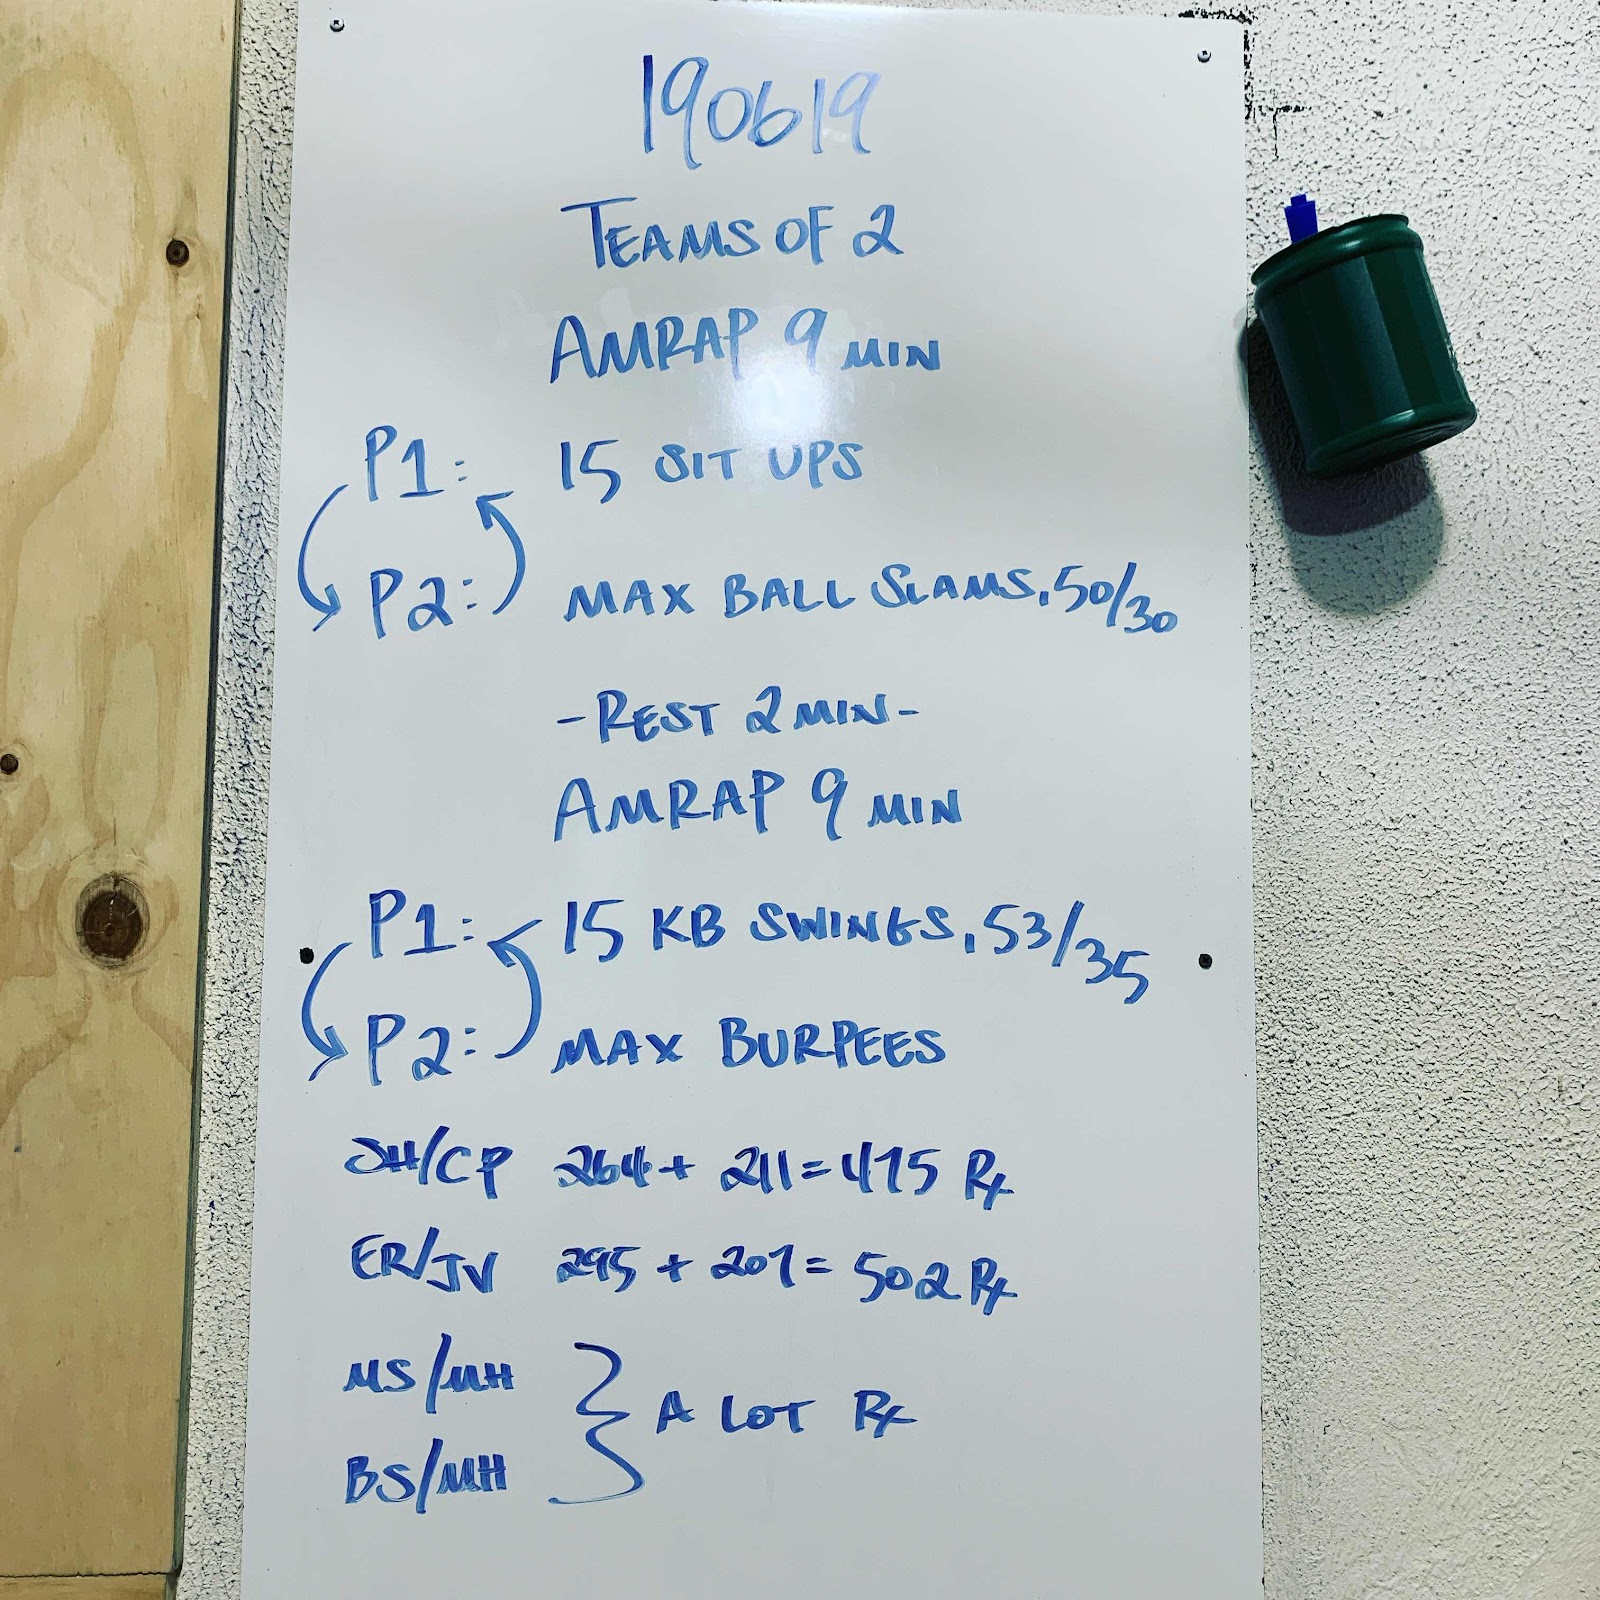 190619
TEAMS OF 2
AMRAP 9 MIN
P1: 15 SIT UPS
P2: MAX BALL SLAMS, 50/30
-REST 2 MIN-
AMRAP 9 MIN
P1: 15 KB SWINGS, 53/35
P2: MAX BURPEES
JH/CP 264 + 211 = 475 Rx
ER/JV 295 + 207 = 502 Rx
MS/MH
A LOT Rx
BS/MH